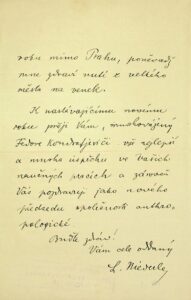 roku mimo Prahu, poněvadž
mne zdraví nutí z velkého
města na venek.
K nastávajícímu novému
roku přeji Vám, mnohovážený
Fedore Kondratjeviči vše nejlepší
a mnoho úspěchu ve Vašich
naučných pracích a zároveň
Vás pozdravuji jako nového
předsedu společnosti anthro-
pologické
Buďte zdráv!
Vám cele oddaný
L. Niederle